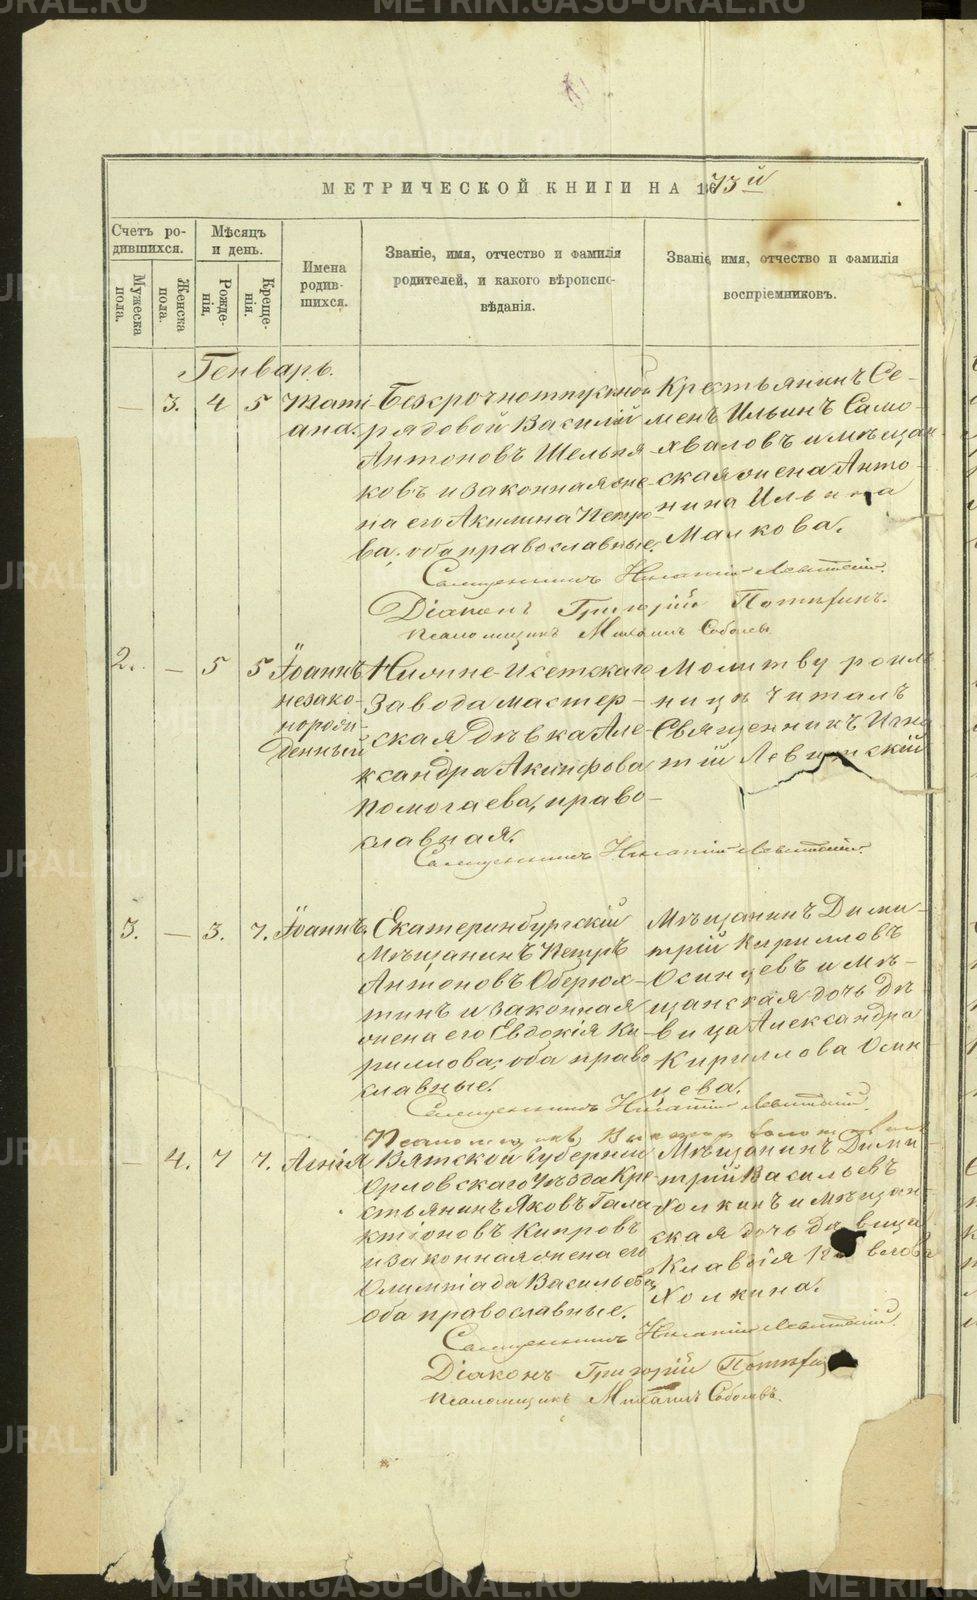 МЕТРИЧЕСКОЙ КНИГИ НА 1873й
Счетъ ро-
дившихся.
Мужеска
пола.
Женска
пола.
Мѣсяцъ
и день.
Рожде-
нія.
Креще-
нія.
Имена
родив-
шихся.
Званіе, имя, отчество и фамилія
родителей, и какого вѣроиспо-
вѣданія.
Званіе, имя, отчество и фамилія
воспріемниковъ.
Генварь.
— 3. 4 5 Тати-
ана.
Безсрочноотпускной
рядовой Василій
Антоновъ Шельпя-
ковъ и законная же-
на его Акилина Петро-
ва, оба православные.
Крестьянинъ Се-
менъ Ильинъ Само-
хваловъ и мѣщан-
ская жена Анто-
нина Ильина
Малкова.
Священникъ Игнатій Левитскій.
Діаконъ Григорій
Псаломщикъ Михаилъ Соболевъ
2. — 5 5 Іоаннъ
незако-
норож-
денный
Нижне-Исетскаго
завода мастер-
ская дѣвка Але-
ксандра Акинфова
Помогаева, право-
славная.
Молитву родиль-
ницѣ читалъ
Священникъ Игна-
тій Левитскій
Священникъ Игнатій Левитскій.
3. — 3. 7. Іоаннъ.
Екатеринбургскій
Мѣщанинъ Петръ
Антоновъ Оберюх-
тинъ и законная
жена его Евдокія Ки-
риллова, оба право
славные.
Мѣщанинъ Дими-
трій Кирилловъ
Осинцевъ и мѣ-
щанская дочь дѣ-
вица Александра
Кириллова Осин-
цева.
Священникъ Игнатій Левитскій.
Псаломщикъ
— 4. 7 7. Агнія
Вятской Губерніи
Орловскаго Уѣзда Кре-
стьянинъ Яковъ Гала-
ктіоновъ Кипровъ
и законная жена его
Олимпіада Васильева,
оба православные.
Мѣщанинъ Дими-
трій Васильевъ
Холкинъ и мѣщан-
ская дочь дѣвица
Клавдія
Холкина.
Священникъ Игнатій Левитскій.
Діаконъ Григорій
Псаломщикъ Михаилъ Соболевъ.
METRIKI.GASO-URAL.RU